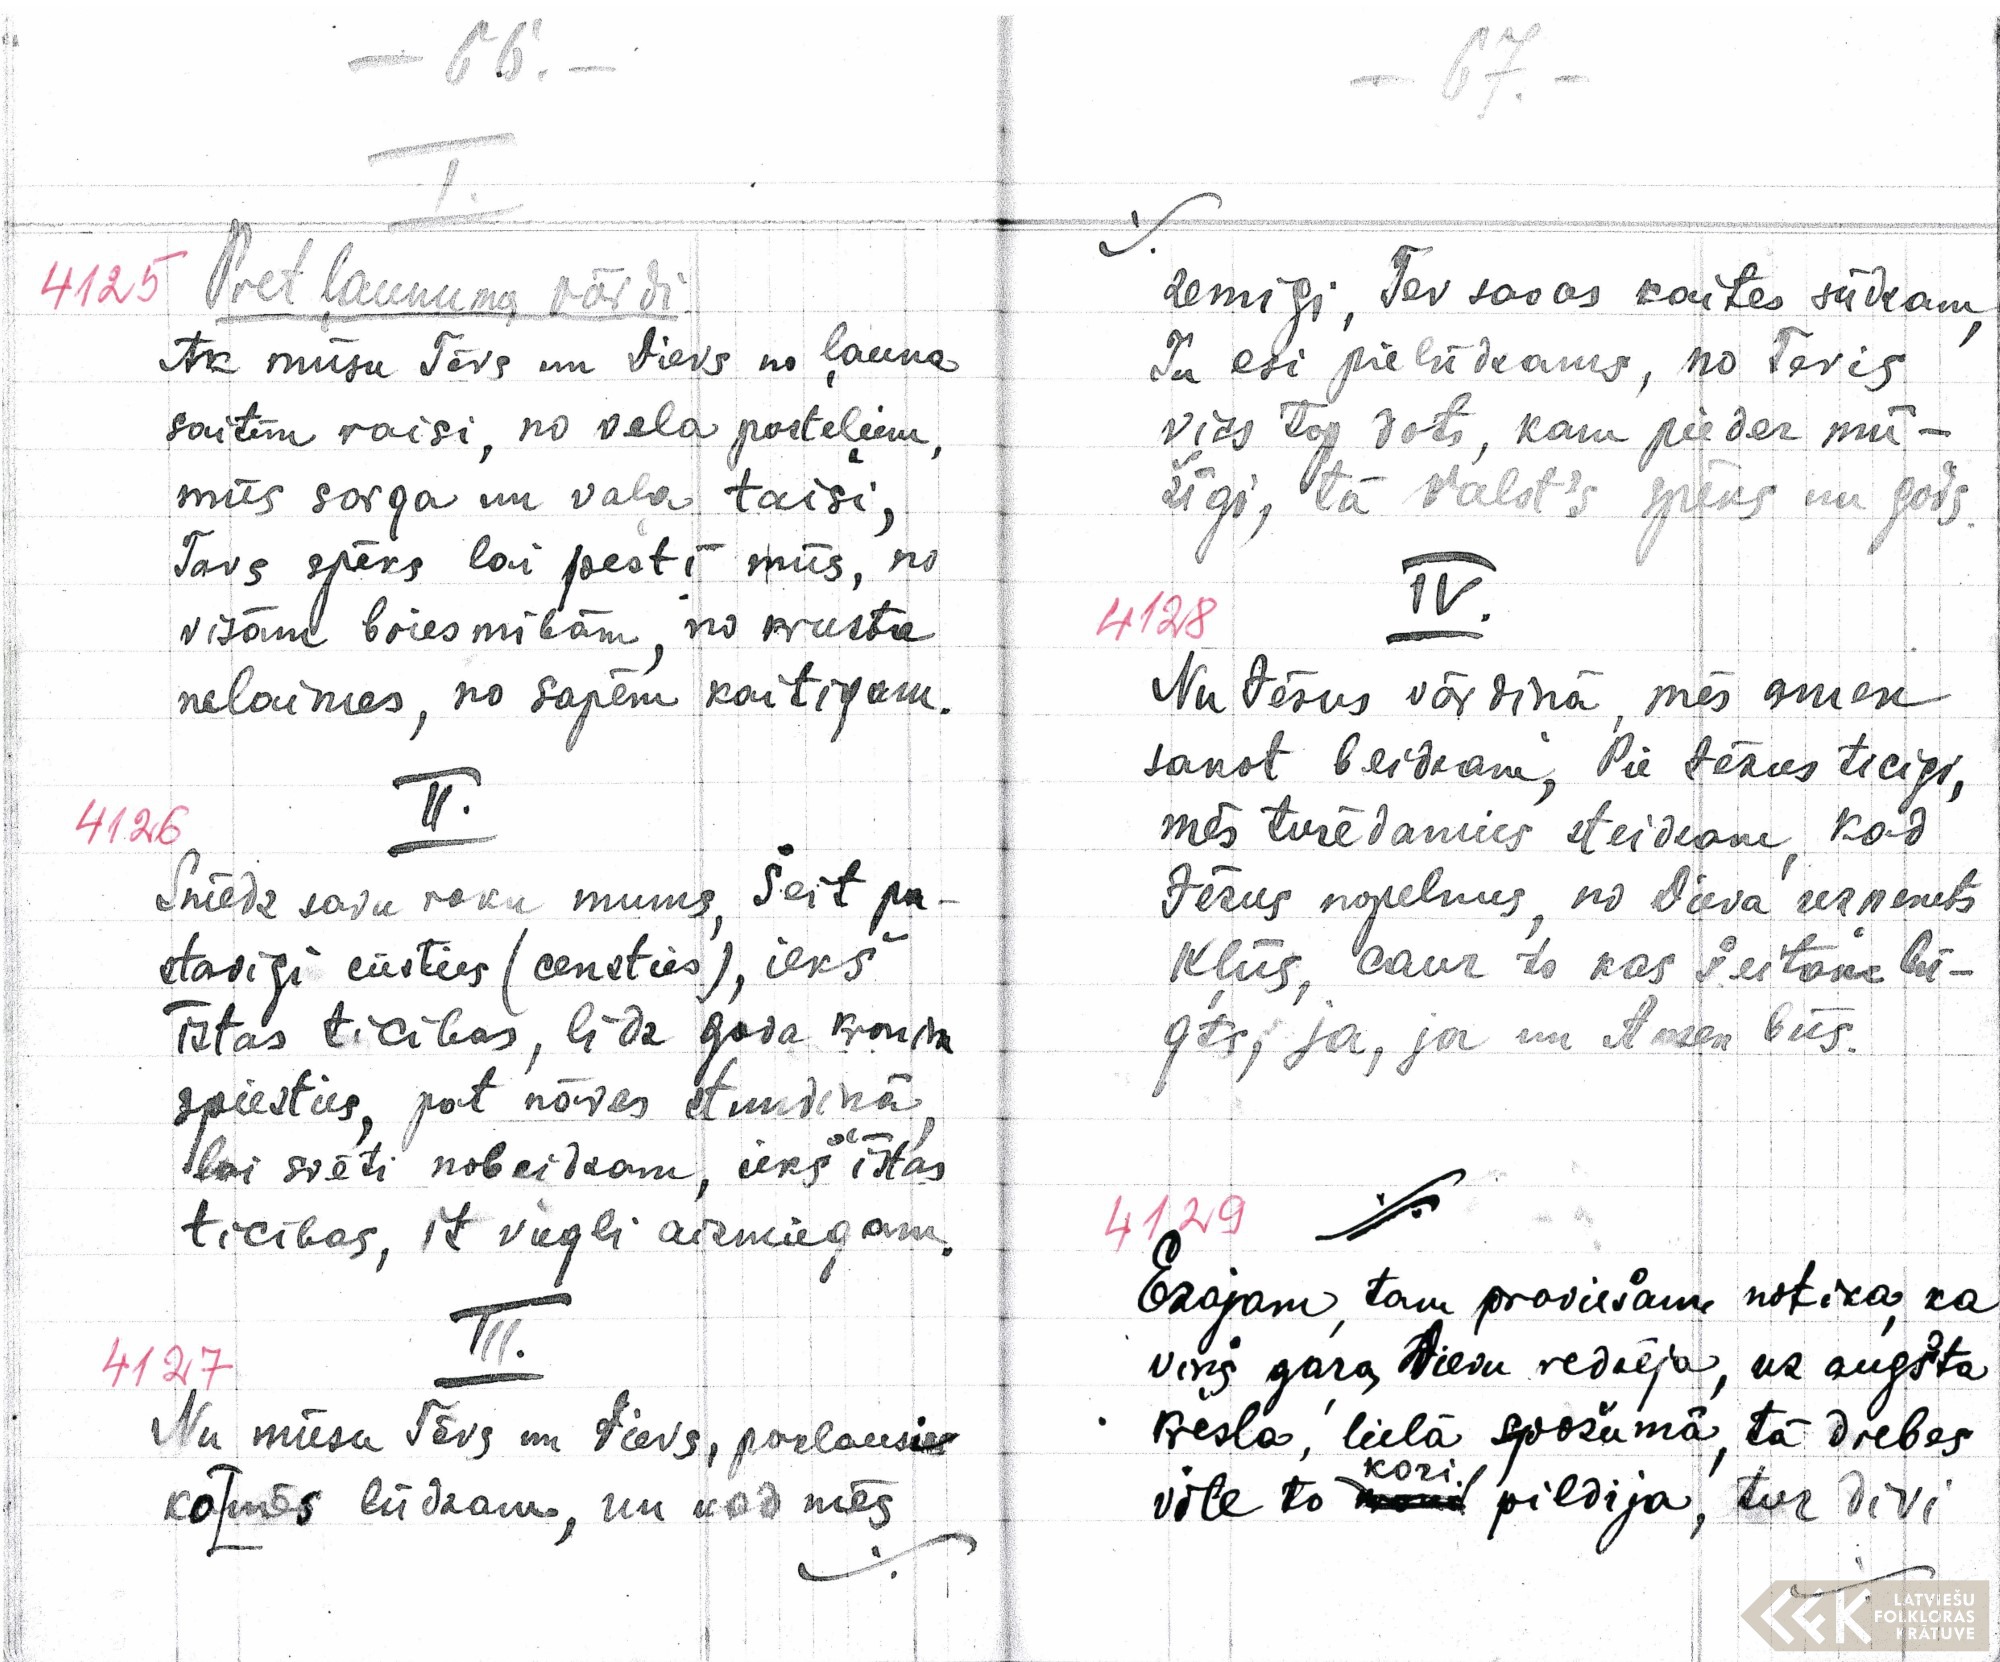 — 66. —
I.
4125 Pret ļaunumu vārdi
Ak mūsu Tēvs un Dievs no ļauna
saitēm raisi, no vela posteļiem,
mūs sarga un vaļa taisi,
Tavs spēks lai pestī mūs, no
visām briesmībām, no krusta
nelaimes, no sapēm kaitigam.
4126 II.
Sniedz savu roku mums, šeit pa-
stavigi cīsties (censties), iekš
īstas ticības, līdz goda kroņa
spiesties, pat nāves stundiņā,
lai svēti nobeidzam, iekš īstas
ticības, it viegli aizmiegam.
4127 III.
Nu mūsu Tēvs un Dievs, paklausi
ko mēs lūdzam, un kad mēs
— 67. —
zemigi, Tev savas kaites sūdzam,
Tu esi pielūdzams, no Tevis
viss top dots, kam pieder mū-
žīgi, tā valst's spēks un gods.
4128 IV.
Nu Jēsus vārdiņā, mēs amen
sakot beidzam, Pie Jēsus ticigi,
mēs turēdamies steidzam, kad
Jēsus nopelnus, no Dieva uzņemts
kļūs, caur to kas šeitan lū-
gts, ja, ja un Amen būs.
4129
Esajam, tam praviešam notika, ka
viņš garā Dievu redzēja, uz augšta
krēsla, lielā spožumā, tā drebes
vīle to kori pildija, tur divi
LATVIEŠU
FOLKLORAS
KRĀTUVE